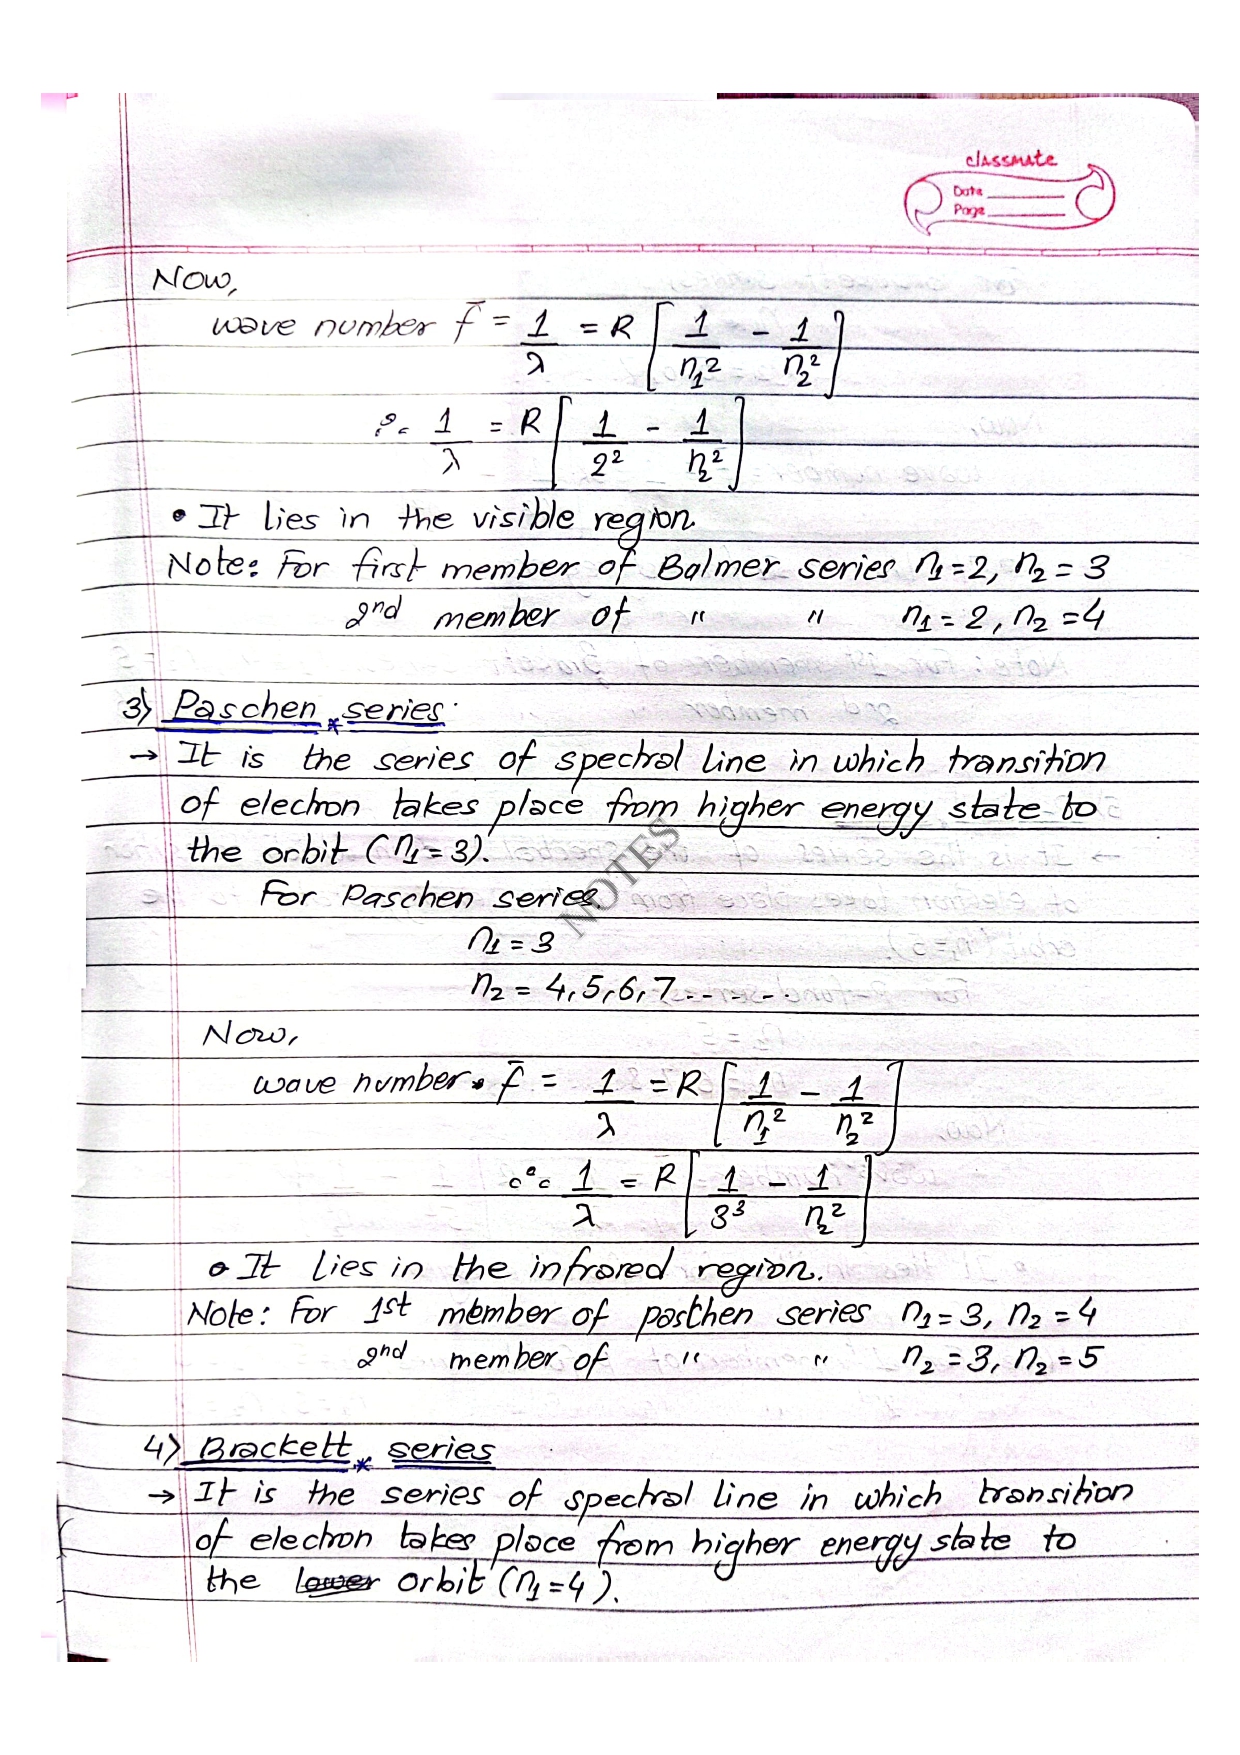 classmate
Date
Page
Now,
wave number f̄ = 1/λ = R [1/n₁² - 1/n₂²]
∴ 1/λ = R [1/2² - 1/n₂²]
• It lies in the visible region.
Note: For first member of Balmer series n₁ = 2, n₂ = 3
2nd member of " " n₁ = 2, n₂ = 4
3) Paschen * series
→ It is the series of spectral line in which transition
of electron takes place from higher energy state to
the orbit (n₁ = 3).
For Paschen series.
n₁ = 3
n₂ = 4, 5, 6, 7 . - - - .
NOTES
Now,
wave number. f̄ = 1/λ = R [1/n₁² - 1/n₂²]
∴ 1/λ = R [1/3³ - 1/n₂²]
• It lies in the infrared region.
Note: For 1st member of pasthen series n₁ = 3, n₂ = 4
2nd member of " " n₂ = 3, n₂ = 5
4) Brackett * series
→ It is the series of spectral line in which transition
of electron takes place from higher energy state to
the lower orbit (n₁ = 4).